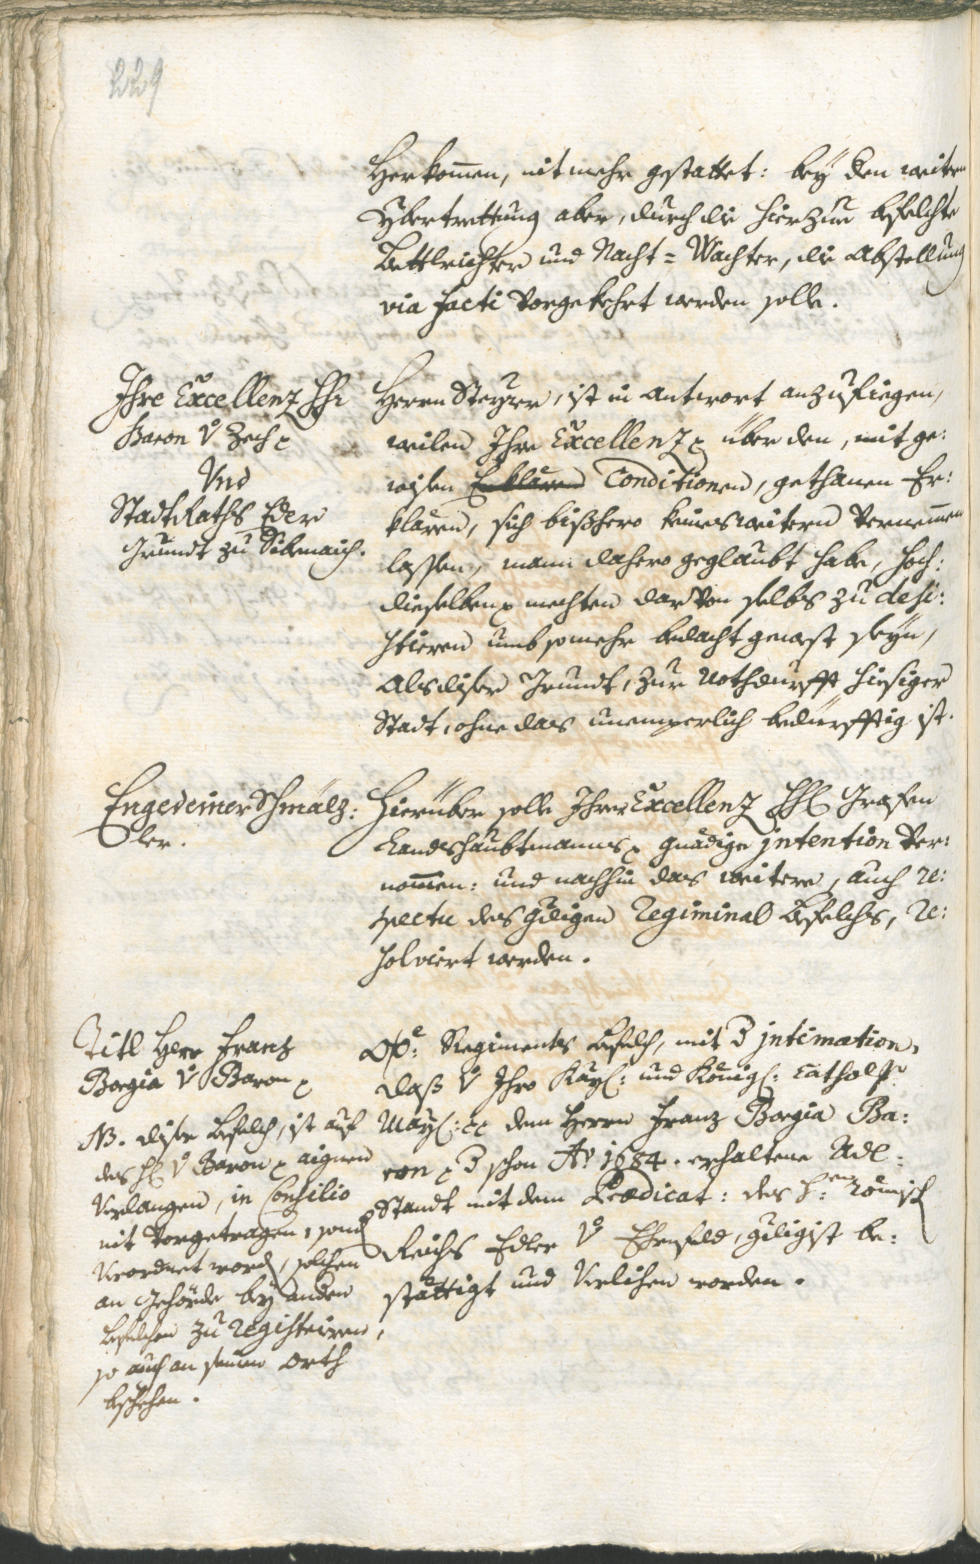 229
Herkom̄en, nit mehr gestattet: beÿ den weitern
Ybertrettung aber, durch die hierzue befelchte
Bettlrichter und Nacht=Wachter, die Abstellung
via facti vorgekehrt werden solle.
Ihre Excellenz Hr
Baron v Zech
Und
Stadt Raths Eder
Grundt zu
Herrn Steyrer, ist in Antwort anzufiegen,
weilen Ihre Excellenz über den, mit ge:
wisen Conditionen, gethanen Er:
klären, sich bißhero keines weitern vernem̄en
lassen, mann dahero geglaubt habe, hoch:
dieselben mechten darvon selbs zu desi:
stieren umb so mehr bedacht gewest seÿn,
Als diser Grundt, zur Nothdurfft hiesiger
Stadt, ohne das unemperlich bedürfftig ist.
Engedeiner Schmälz:
ler.
Hierüber solle Ihrer Excellenz H Grafen
Landshaubtmanns gnädige intention ver:
nom̄en: und nachhin das weitere, auch re:
spectu des Regiminal Befelchs, re:
solviert werden.
Titl Herr Franz
Borgia v Baron
NB. diser Befelch, ist auf
des H v Baron aignen
Verlangen, in Consilio
nit vorgetragen, sond
Verordnet word, solchen
an Gehörde beÿ andern
befelchen zu registriren,
so auch an seinem Orth
beschehen.
Regiments Befelch, mit intimation,
daß v Ihro Kaÿ: und Königl: Catholl
Maÿ: dem Herrn Franz Borgia Ba:
ron schon Aō 1684. erhaltene Adl:
Standt mit dem Prædicat: des H: Römisch
Reichs Edler v Ehrnfeld, gdigist be:
stättigt und Verlihen worden.